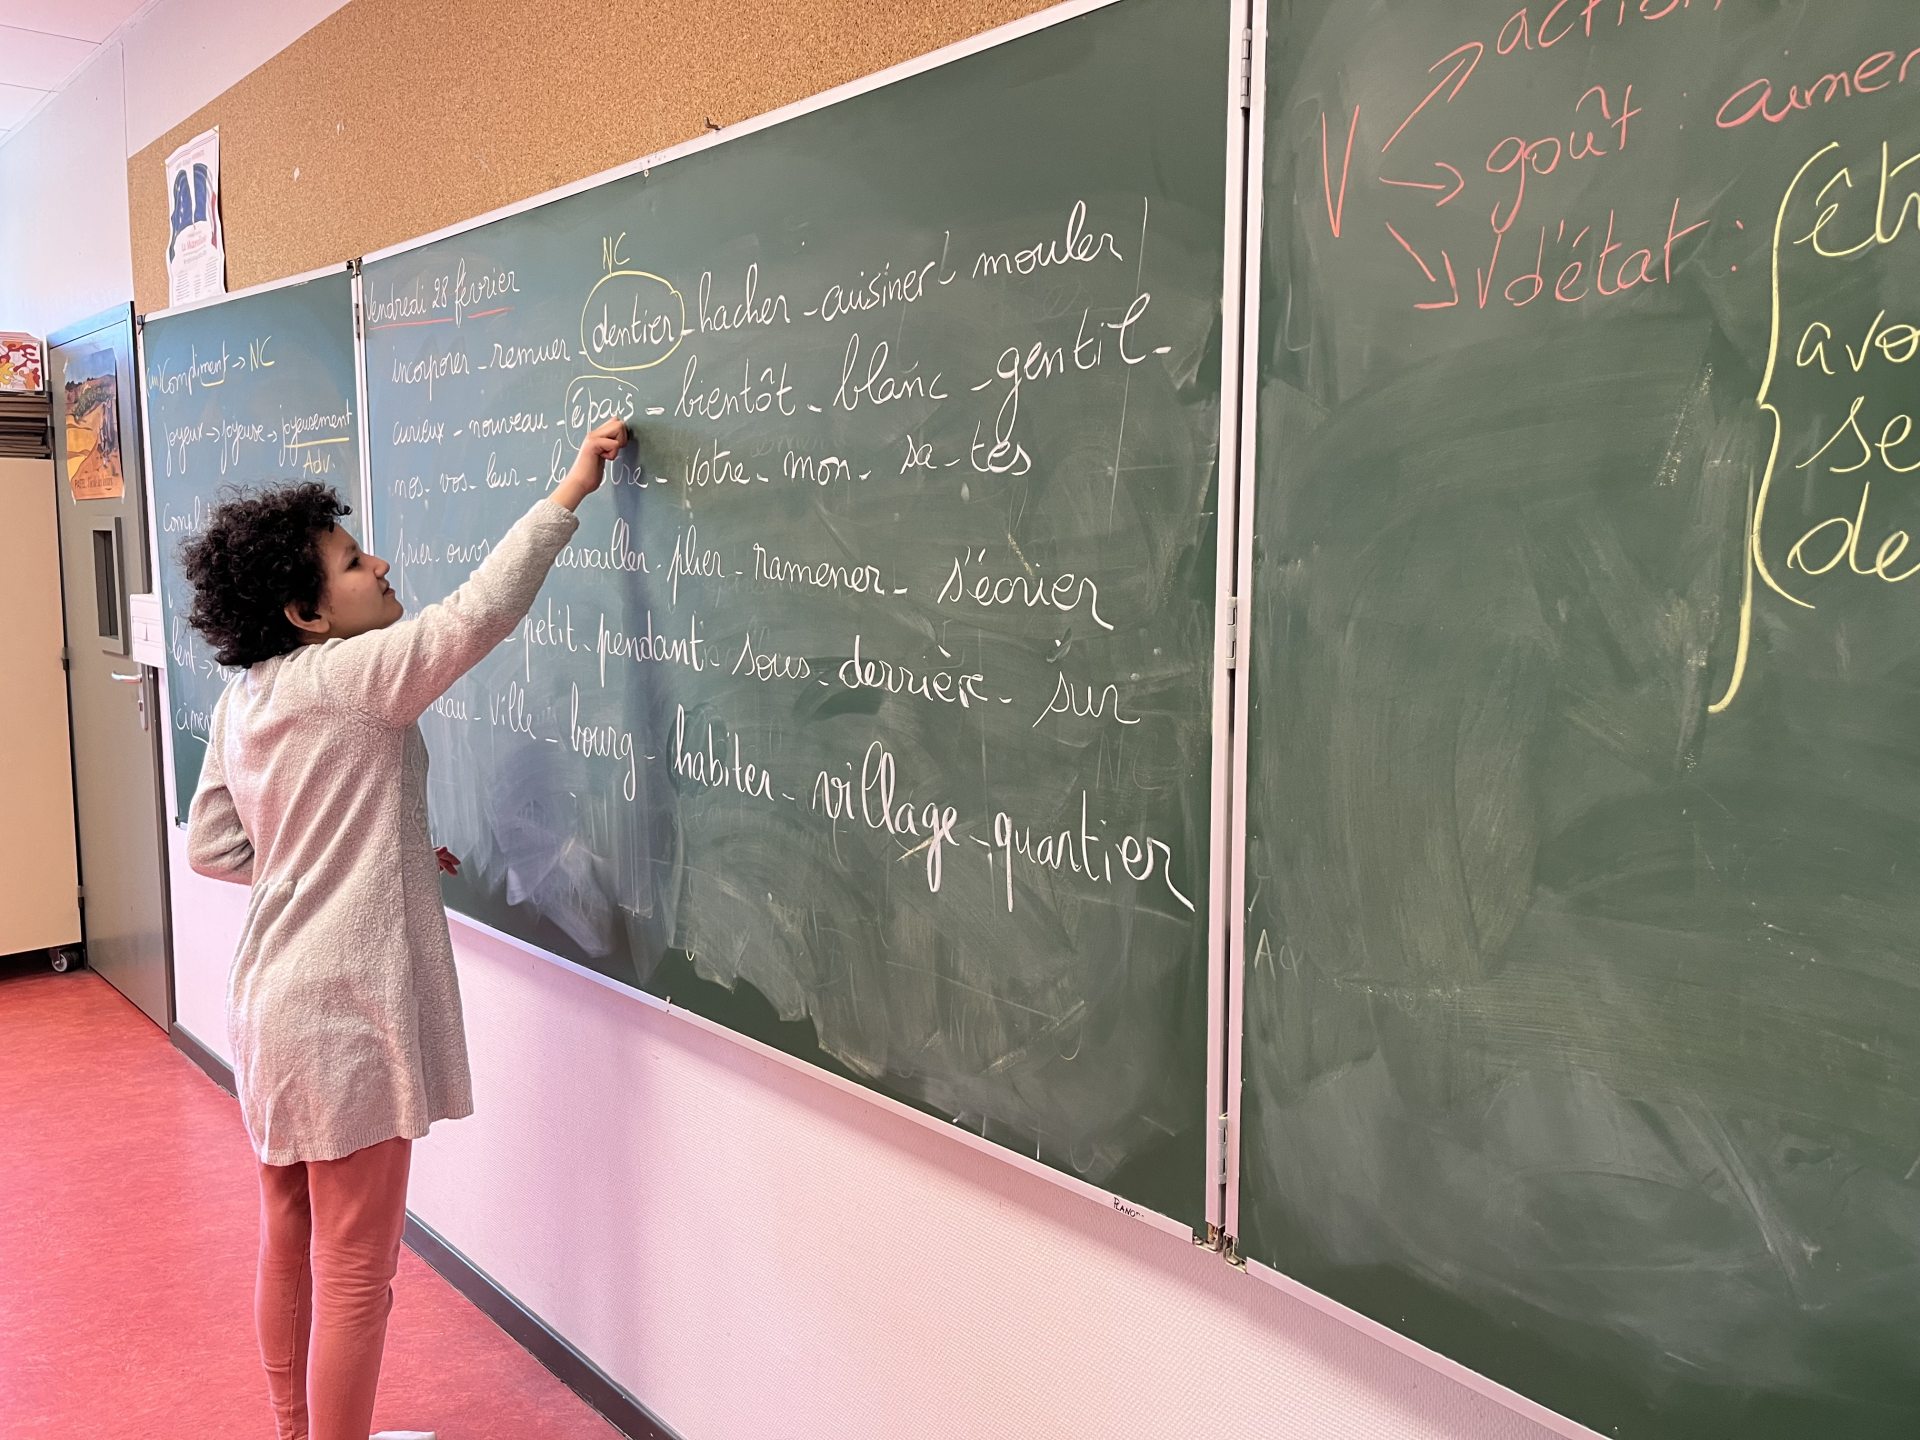 (un) Compliment → NC
joyeux → joyeuse → joyeusement
Adv.
lent →
ciment
Vendredi 28 février
NC
incorporer - remuer - dentier - hacher - cuisiner - mouler
curieux - nouveau - épais - bientôt - blanc - gentil -
nos - vos - leur - votre - mon - sa - tes
prier - plier - ramener - s'écrier
petit - pendant - sous - derrière - sur
ville - bourg - habiter - village - quartier
V action
→ goût : aimer
V d'état :